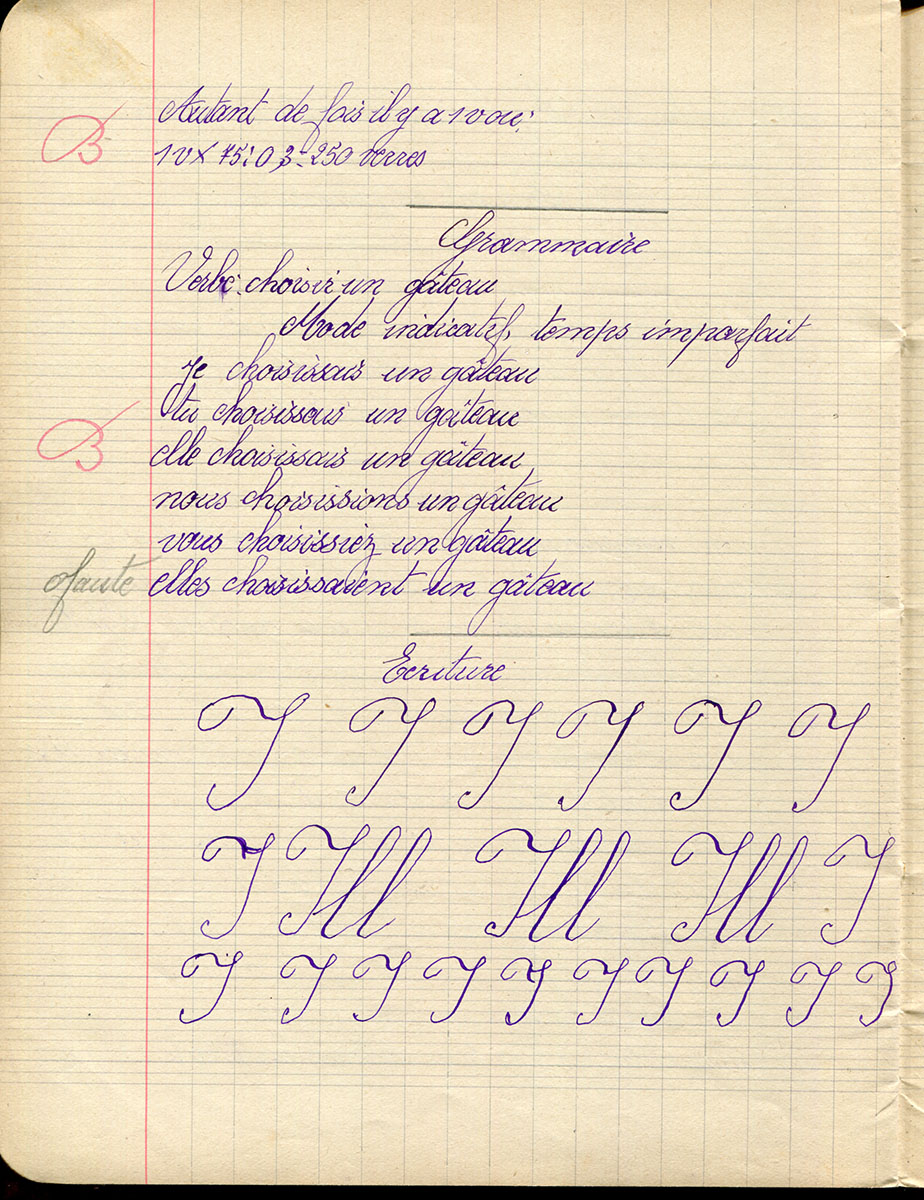 Autant de fois il y a 1 v ou:
B
1 v x 75 : 0,3 = 250 verres
Grammaire
Verbe choisir un gâteau
Mode indicatif, temps imparfait
Je choisissais un gâteau
Tu choisissais un gâteau
B
elle choisissais un gâteau
nous choisissions un gâteau
vous choisissiez un gâteau
0 faute
elles choisissaient un gâteau
Ecriture
I I I I I I
I Ill Ill Ill I
I I I I I I I I I I